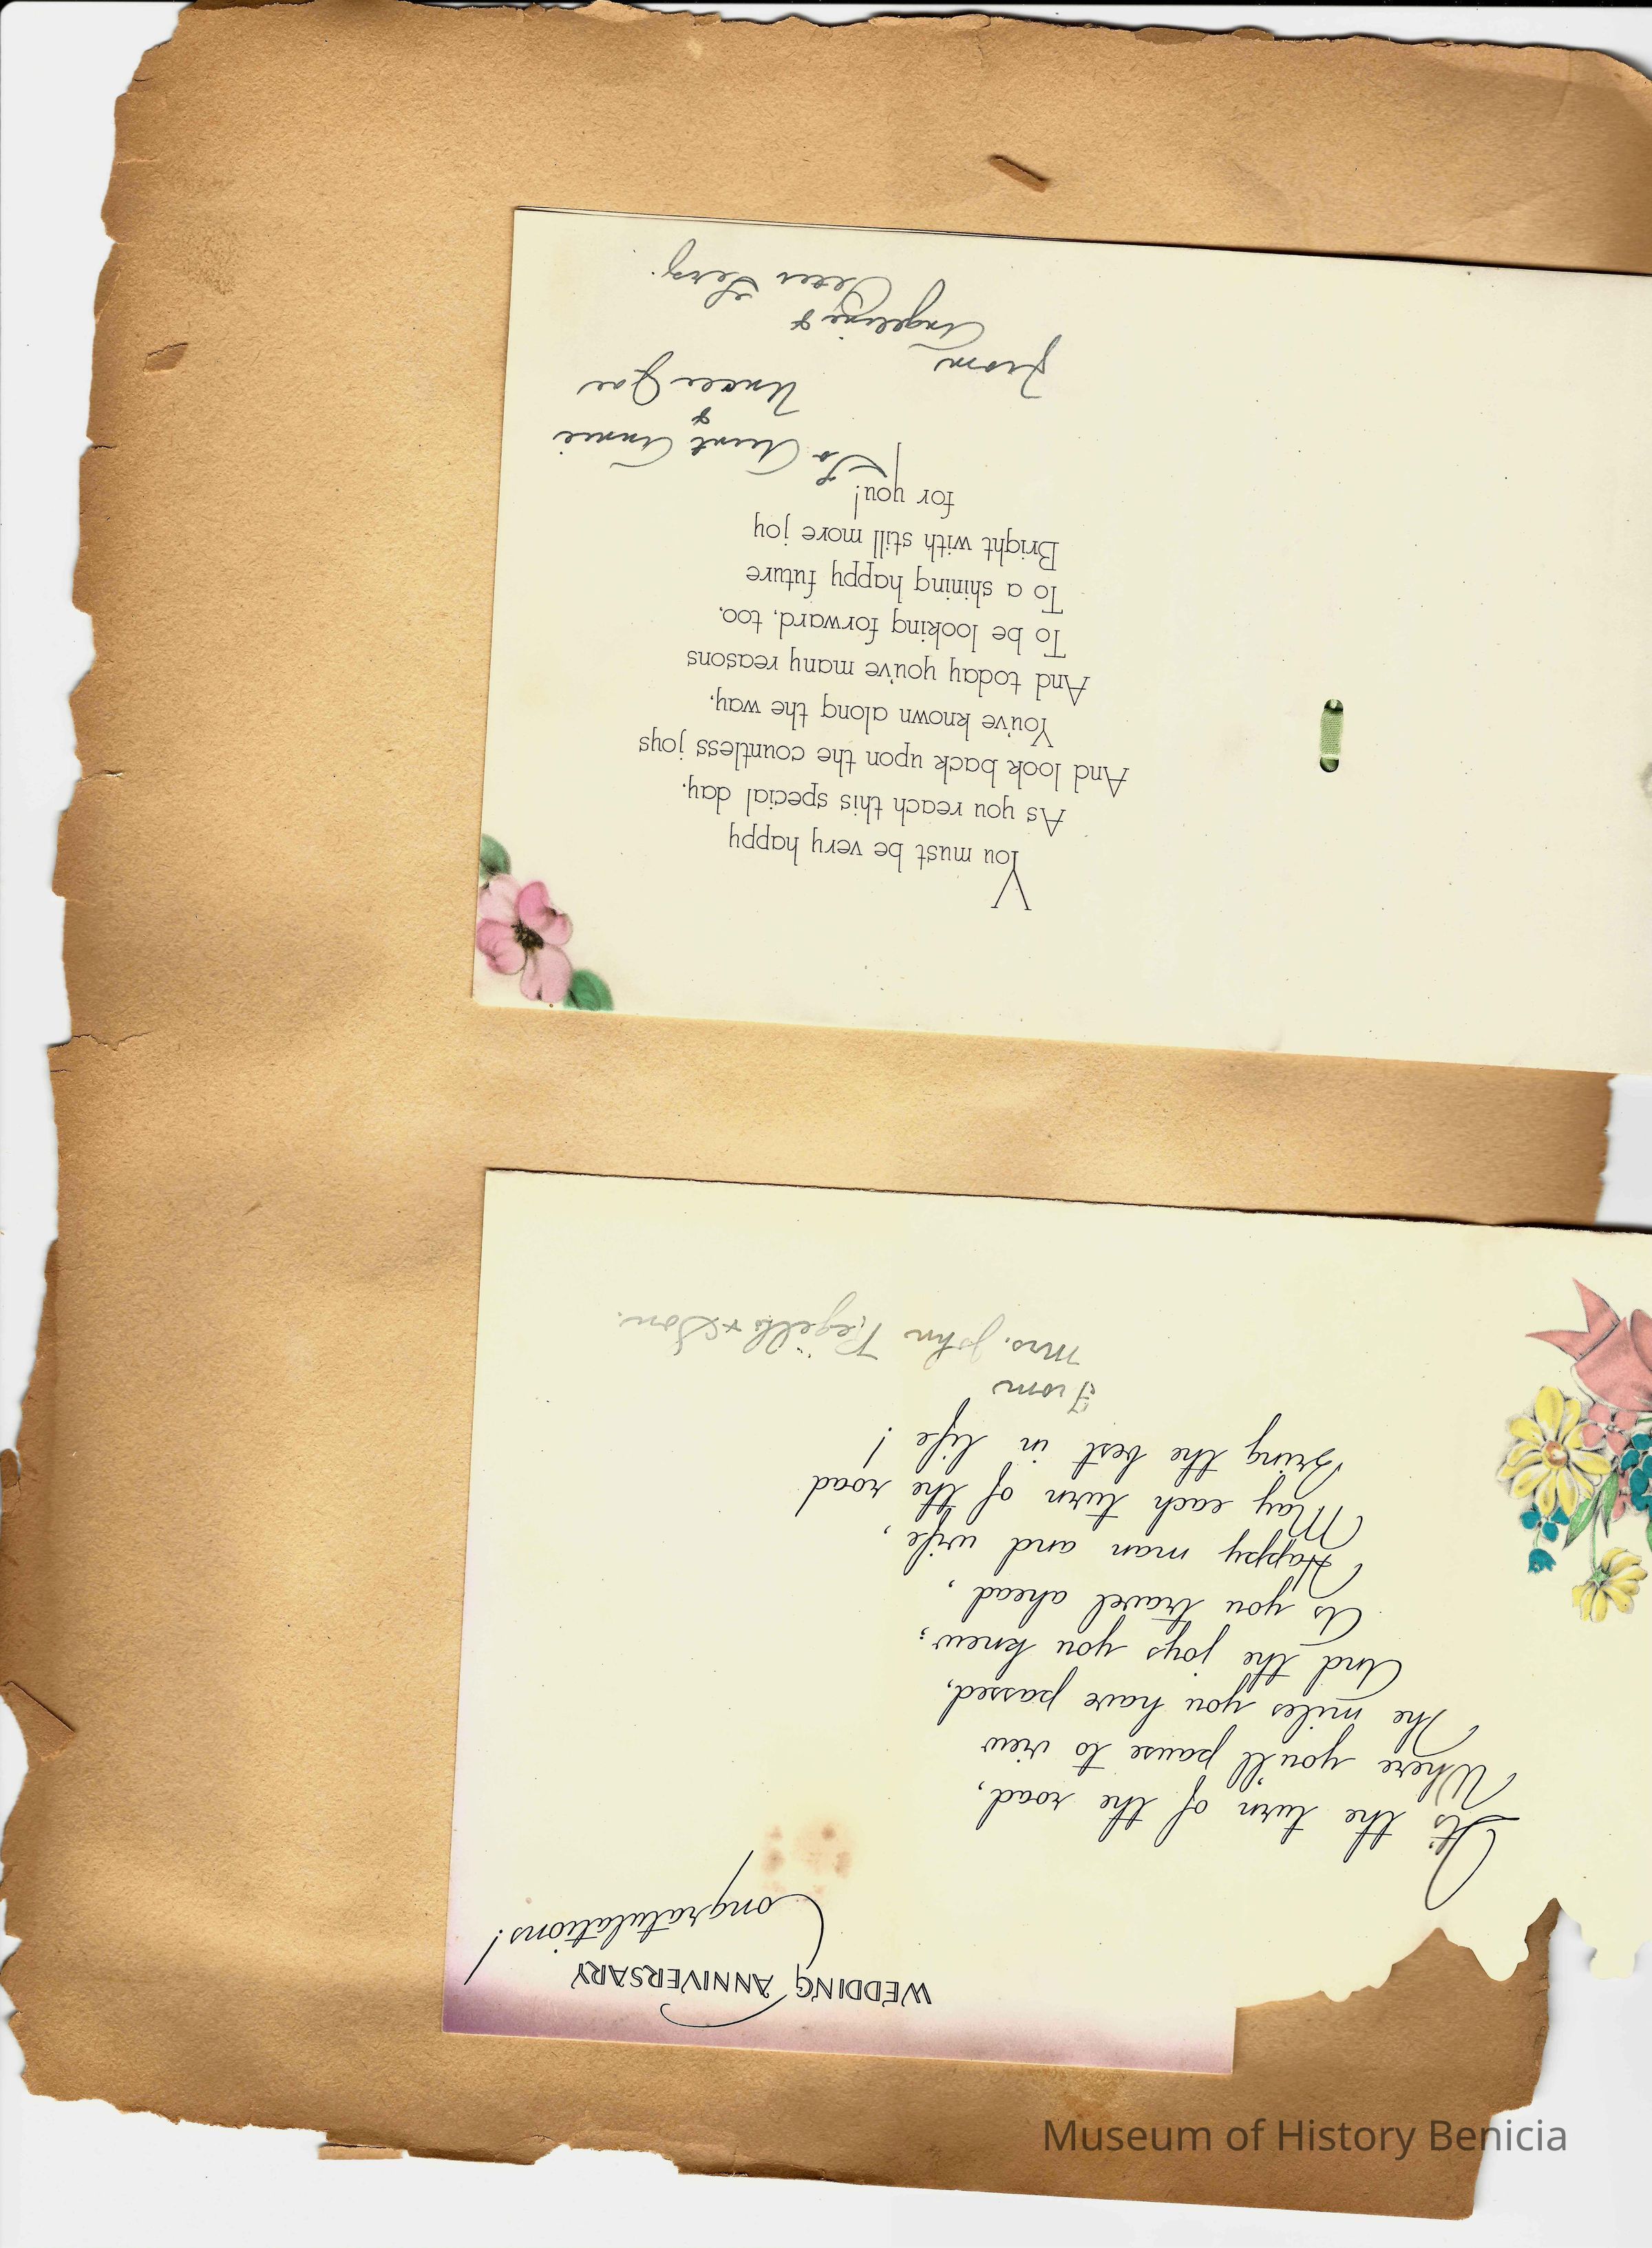 WEDDING ANNIVERSARY
Congratulations!
It's the turn of the road,
Where you'll pause to view
The miles you have passed,
And the joys you knew;
As you travel ahead,
Happy man and wife,
May each turn of the road
Bring the best in life!
From
Mrs. John & Son.
You must be very happy
As you reach this special day,
And look back upon the countless joys
You've known along the way,
And today you've many reasons
To be looking forward, too,
To a shining happy future
Bright with still more joy
for you!
To Aunt Annie
&
Uncle Joe
From
Angeline &
Museum of History Benicia